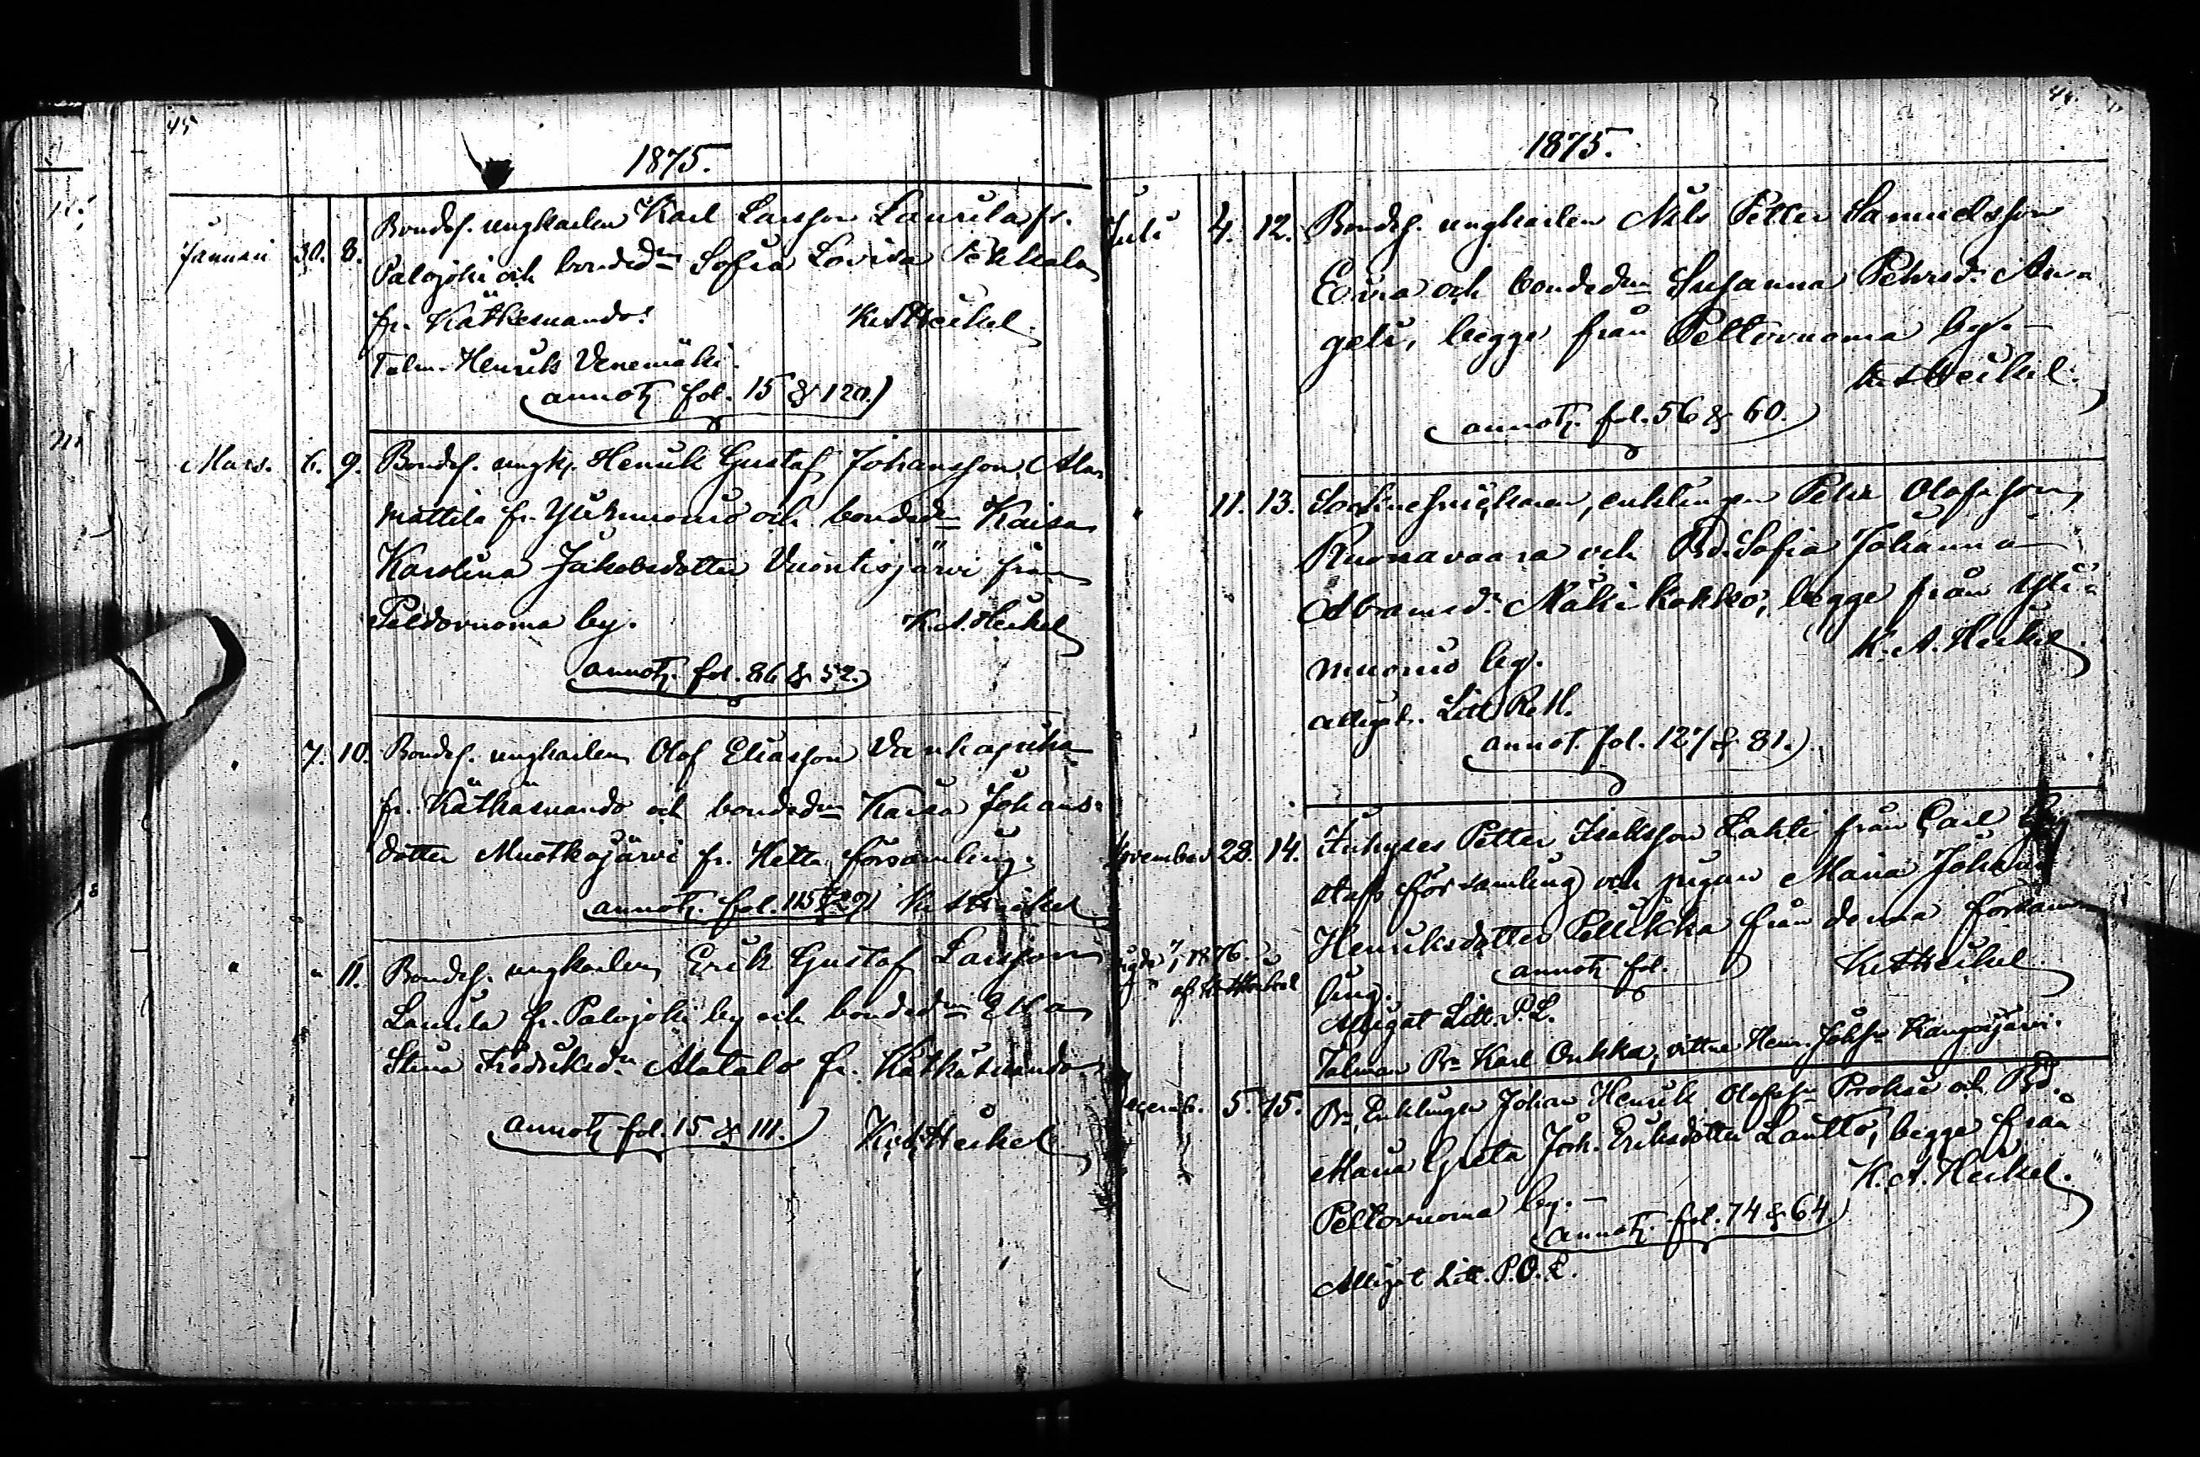 45
1875.
Januari 30. 8. Bondes. ungkarlen Karl Larsson Laurila fr.
Palojoki och bondedn Sofia Lovisa Pekkala
fr. Kätkesuando. K A Heikel
Talm. Henrik Venemäki.
annot. fol. 15 & 120.)
Mars. 6. 9. Bondes. ungk. Henrik Gustaf Johansson Ala
mattila fr. Ylimuonio och bondedn Kaisa
Karolina Jakobsdotter Vuontisjärvi från
Peldovuoma by. K. A. Heikel
annot. fol. 86 & 52.)
" 7. 10. Bondes. ungkarlen Olof Eliasson Vanhapiha
fr. Kätkäsuando och bondedn Kaisa Johans-
dotter Muotkajärvi fr. Hetta församling.
annot. fol. 115 & 29) K A Heikel
" " 11. Bondes. ungkarlen Erik Gustaf Larsson
Laurila fr. Palojoki by och bondedn
Stina Fredriksdr Alatalo fr. Kätkäsuando
annot. fol. 15 & 111.) K. A. Heikel
1875.
Juli 4. 12. Bondes. ungkarlen Nils Petter Samuelsson
Eira och bondedn Susanna Pehrsdr An-
geli, begge från Peltovuoma by.
K A Heikel.
annot. fol. 56 & 60.)
" 11. 13. Sockneskräddaren, enklingen Pehr Olofsson
Ruonavaara och Bd. Sofia Johanna
Abramsdr Mäki Kokko, begge från Yli-
muonio by. K. A. Heikel
alligat. Litt. R. H.
annot. fol. 127 & 81.)
November 28. 14. Inhyses Petter Isaksson Lahti från Carl Gu
stafs församling och pigan Maria Johan
Henriksdotter Pellikka från denna försam
ling. annot. fol. K A Heikel
1876.
af K A Heikel
Alligat Litt. P. L.
Talman Bn Karl Onkka, vittne Henr. Johsn Kangosjärvi.
Decemb. 5. 15. Bn, Enklingen Johan Henrik Olofssn Proksi och Bd.
Maria Greta Joh. Eriksdotter Lautto, begge från
Peltovuoma by. K. A. Heikel.
annot. fol. 74 & 64)
Alligat Litt. P. O. L.